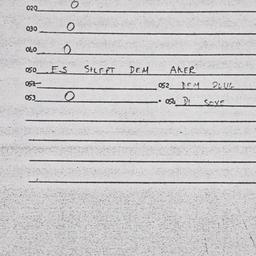 020 0
030 0
040 0
050 ES SILEPT DEM AKER
051 052 DEM PLUG
053 0 054 DI SEVE